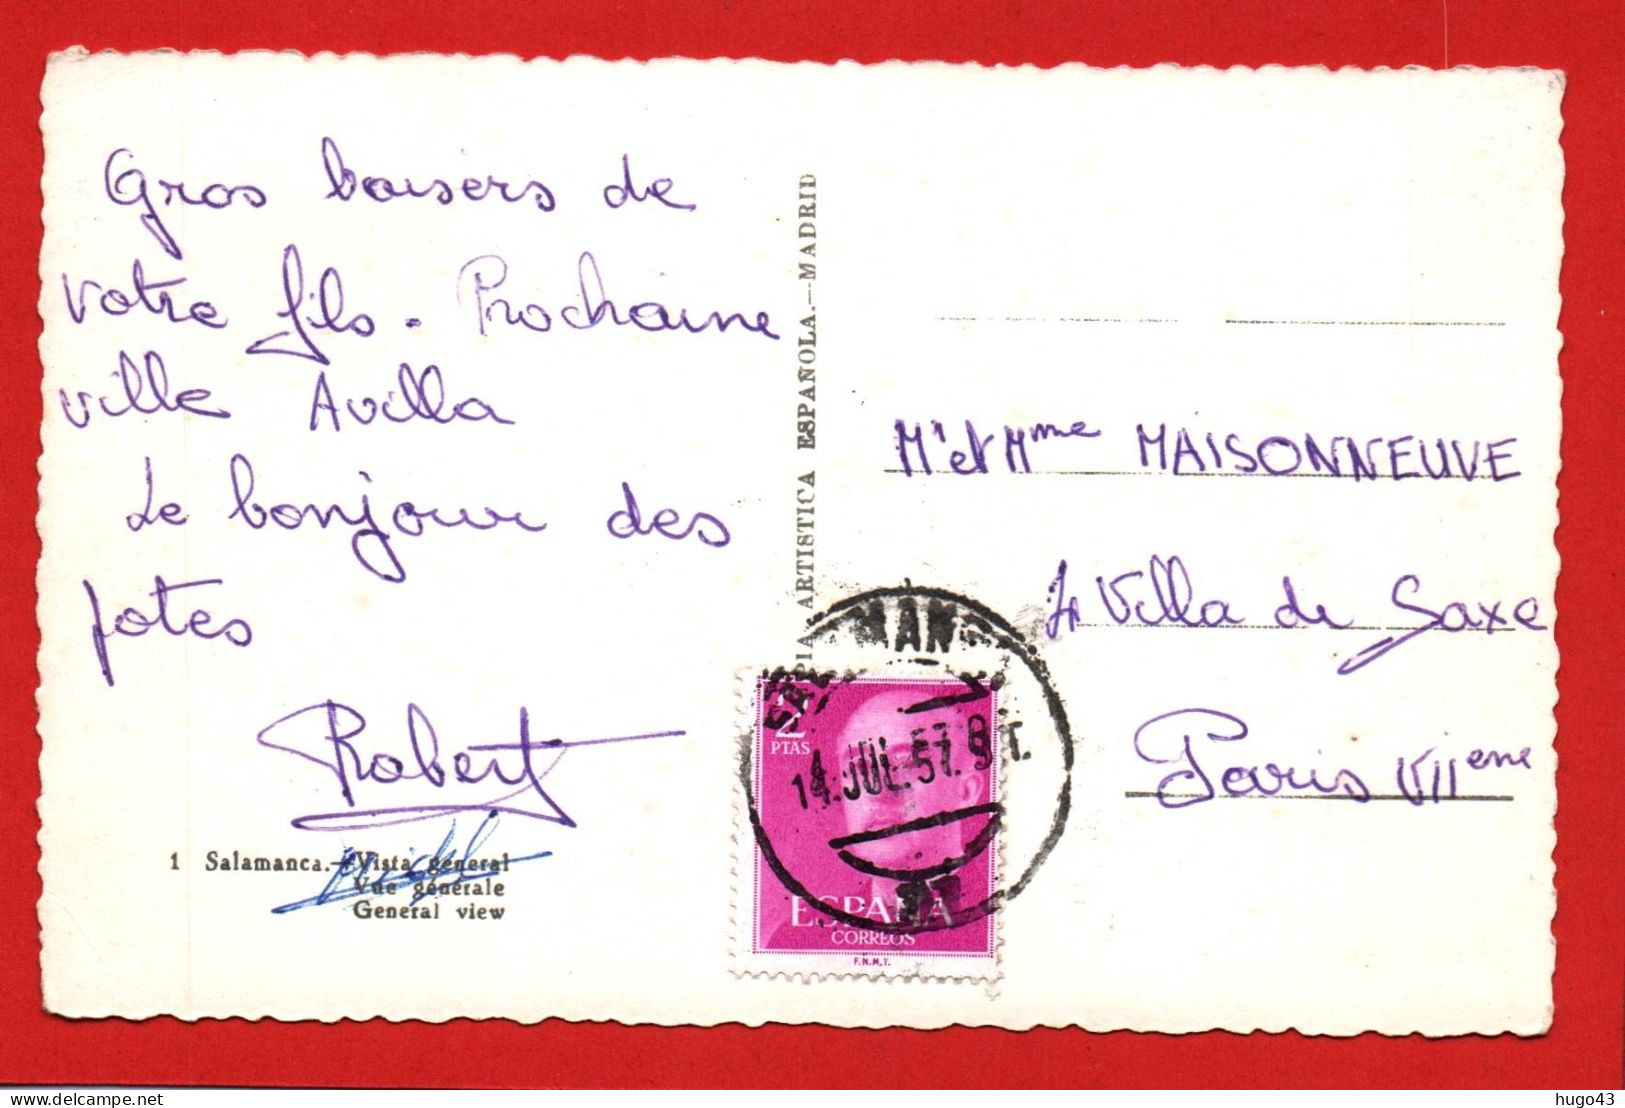 Gros baisers de
votre fils - Prochaine
ville Avilla
Le bonjour des
potes
Robert
1 Salamanca.—Vista general
Vue générale
General view
ARTISTICA ESPAÑOLA.—MADRID
2
PTAS
14.JUL.57.
ESPAÑA
CORREOS
F.N.M.T.
Mr et Mme MAISONNEUVE
Villa de Saxe
Paris VIIeme
hugo43